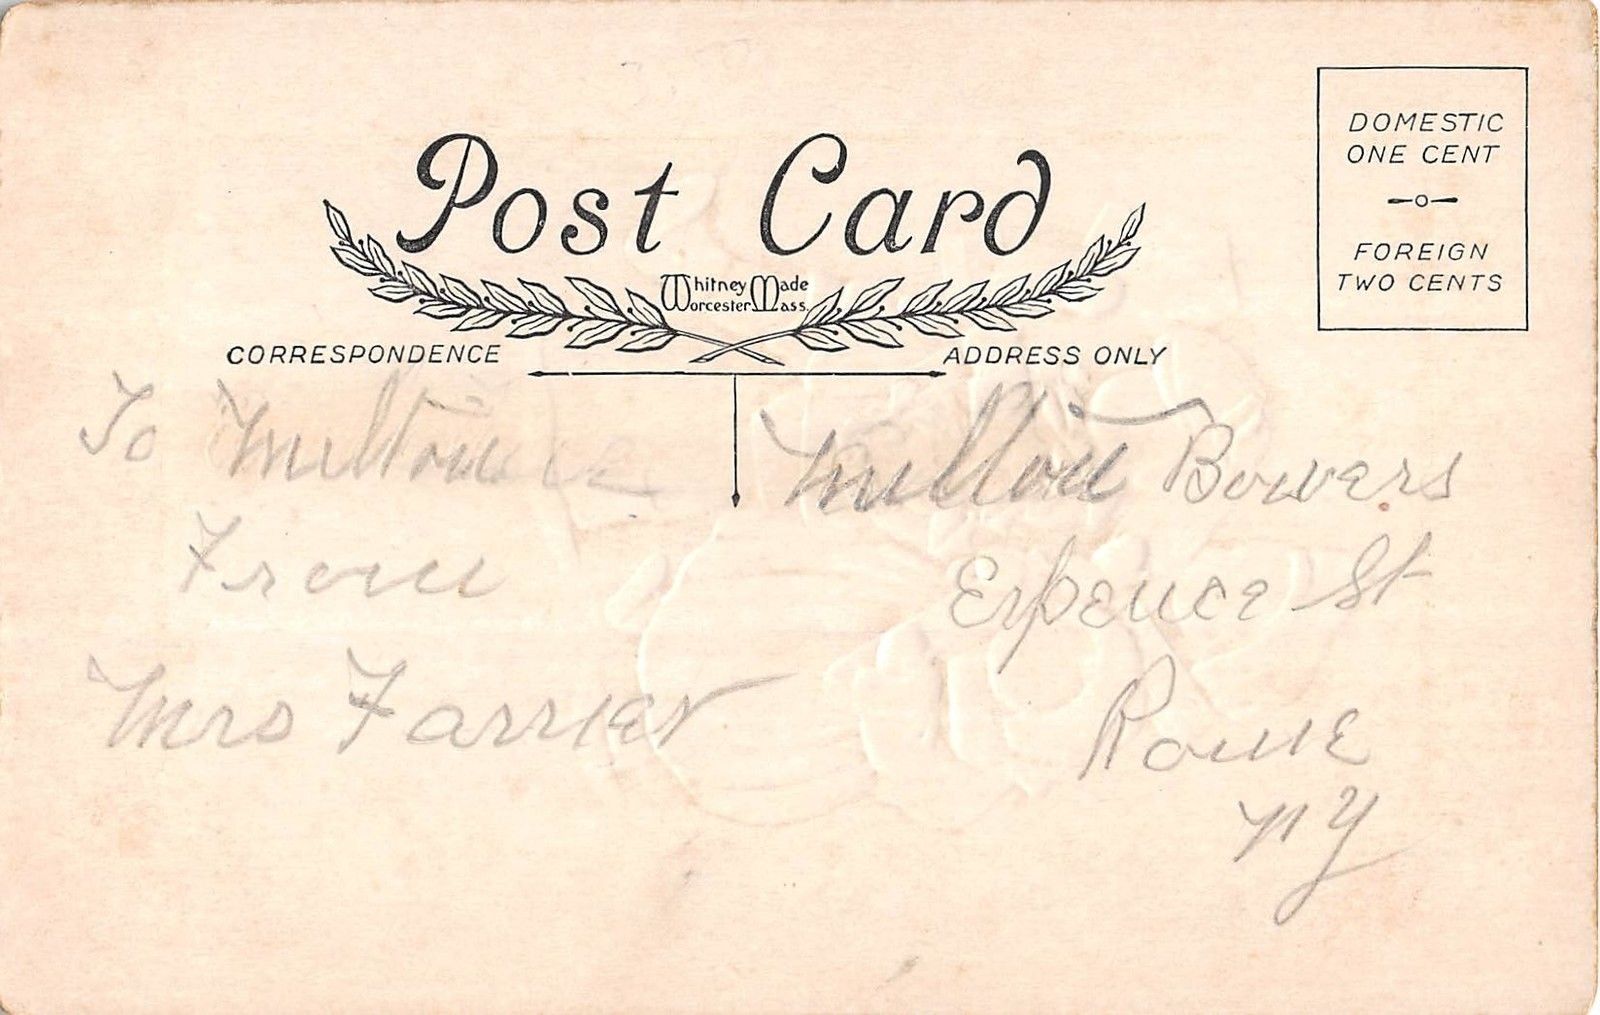 Post Card
Whitney Made
Worcester Mass.
DOMESTIC
ONE CENT
FOREIGN
TWO CENTS
CORRESPONDENCE
ADDRESS ONLY
To Milton
From
Mrs Farrier
Milton Bowers
Erpence St
Rome
NY